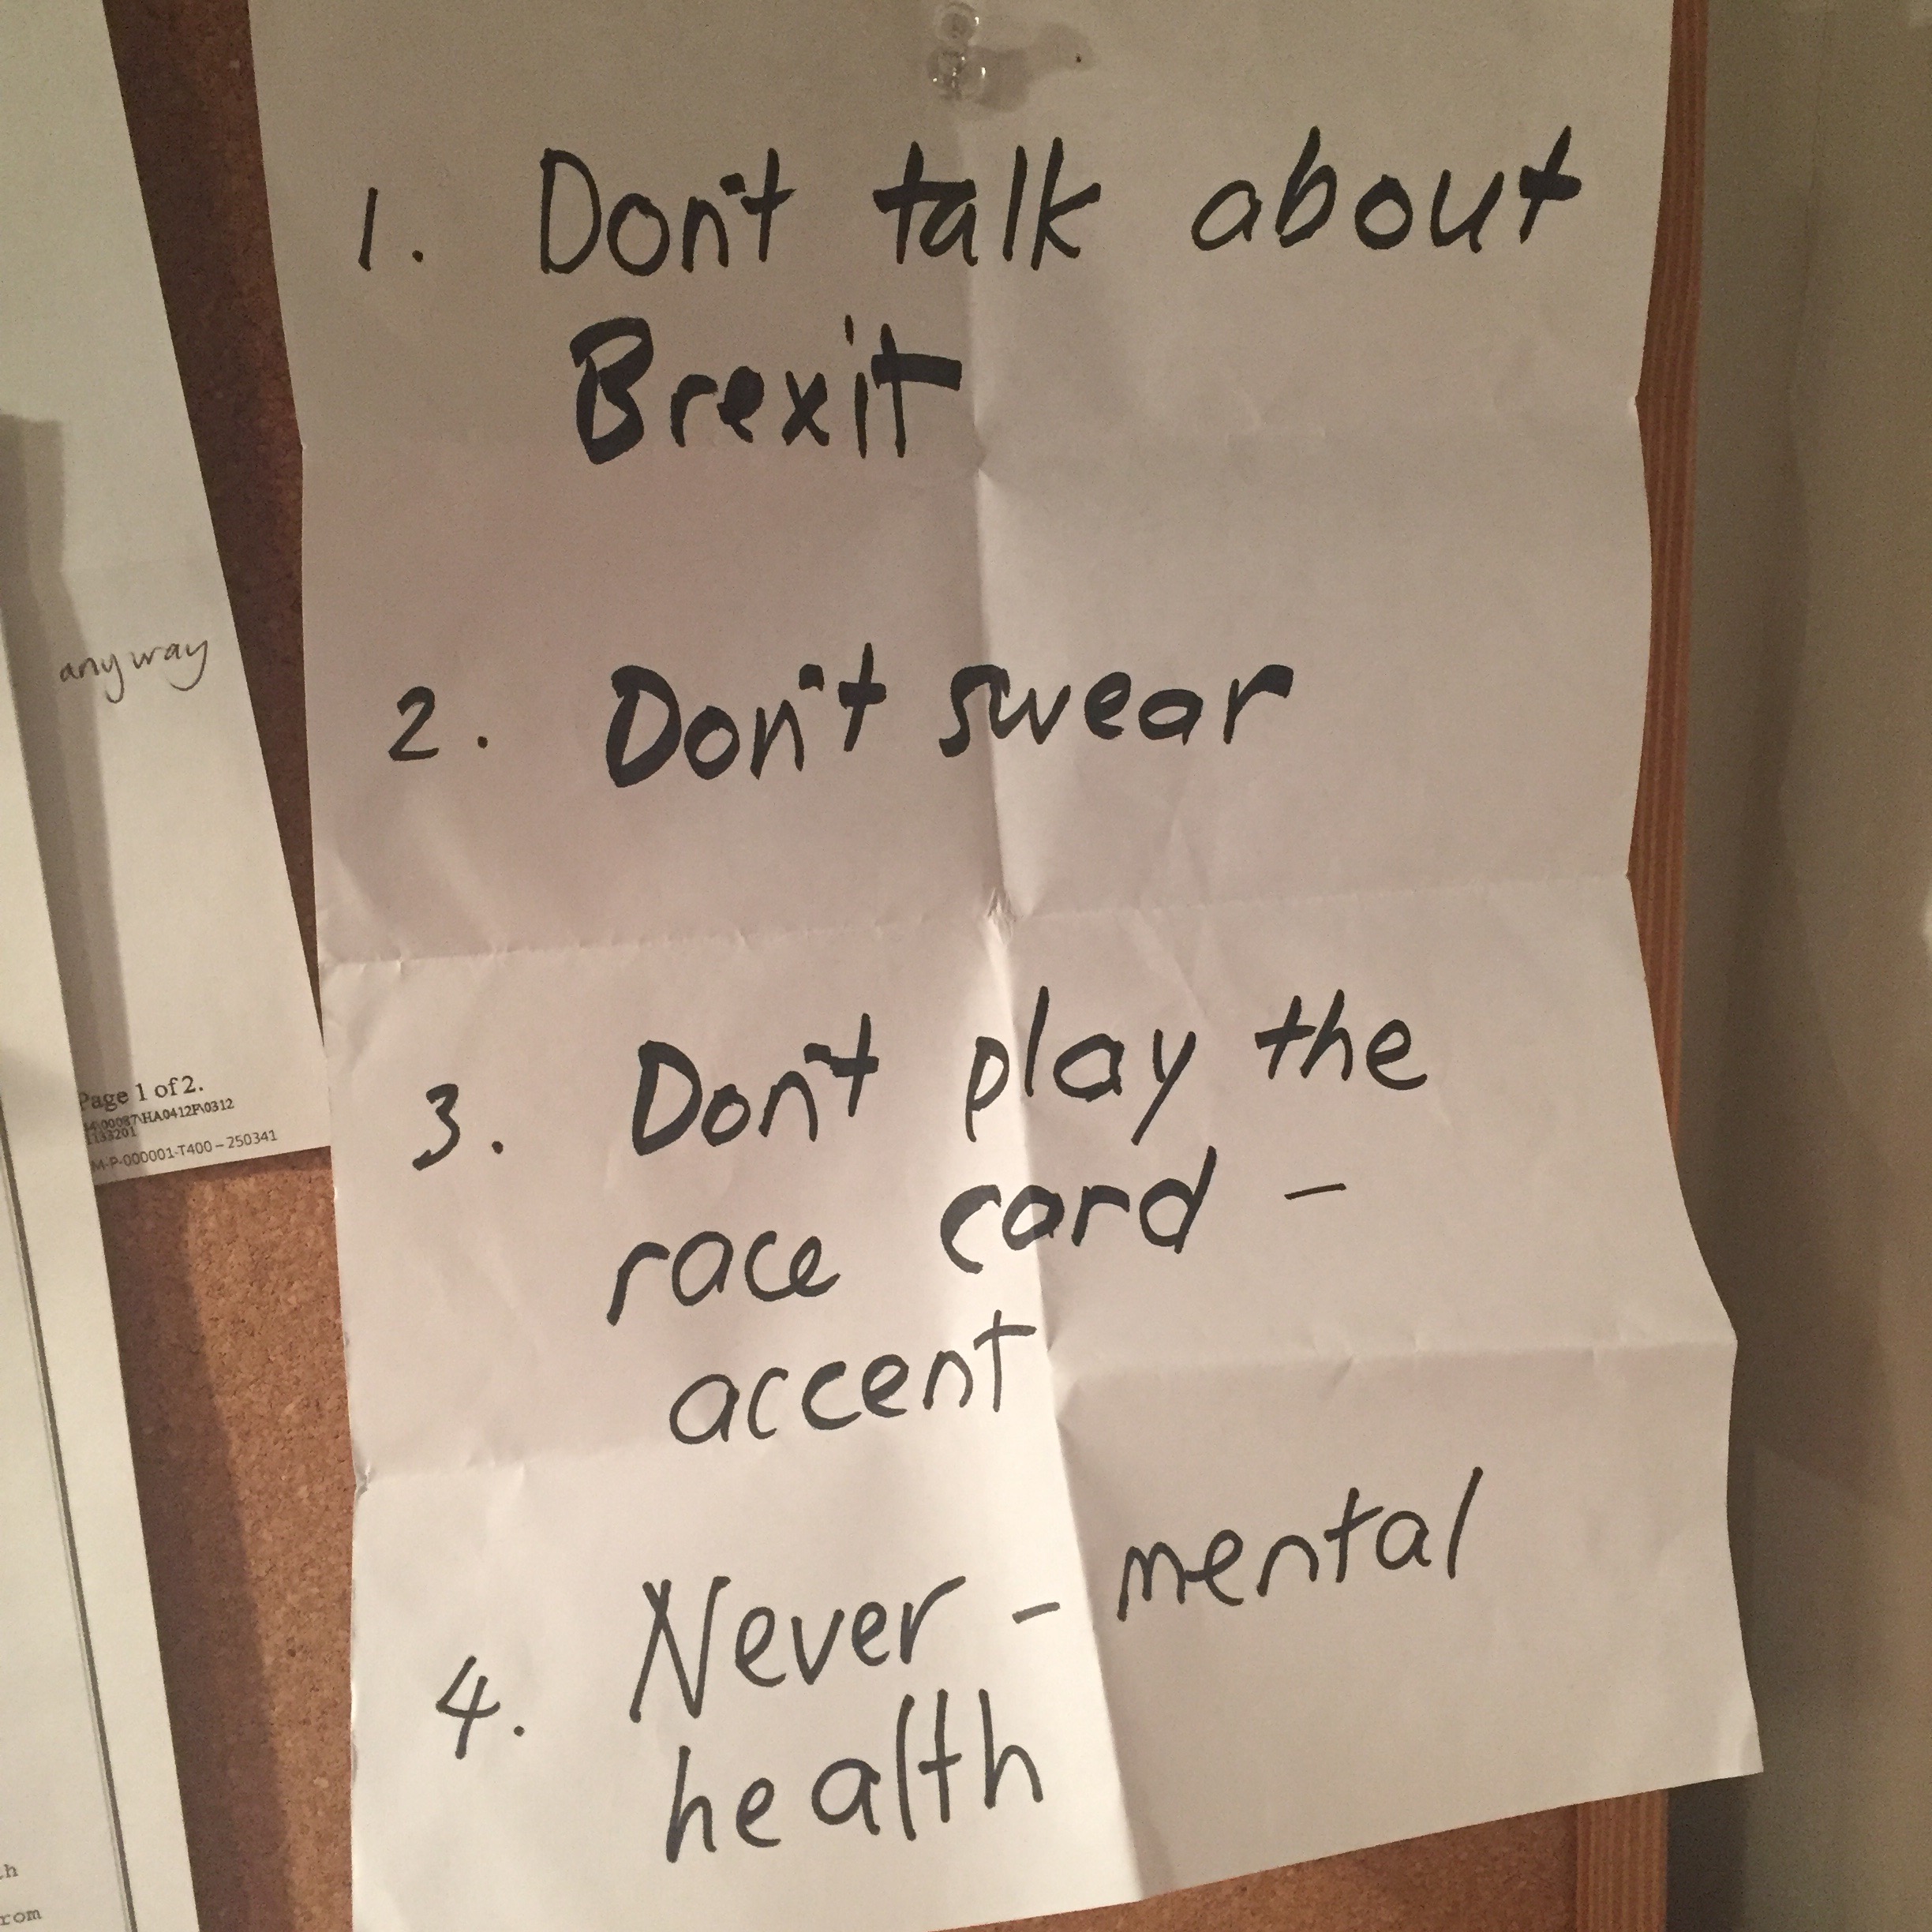 1. Don't talk about
Brexit
2. Don't swear
3. Don't play the
race card -
accent
4. Never - mental
health
anyway
Page 1 of 2.
M-P-000001-T400-250341
rom